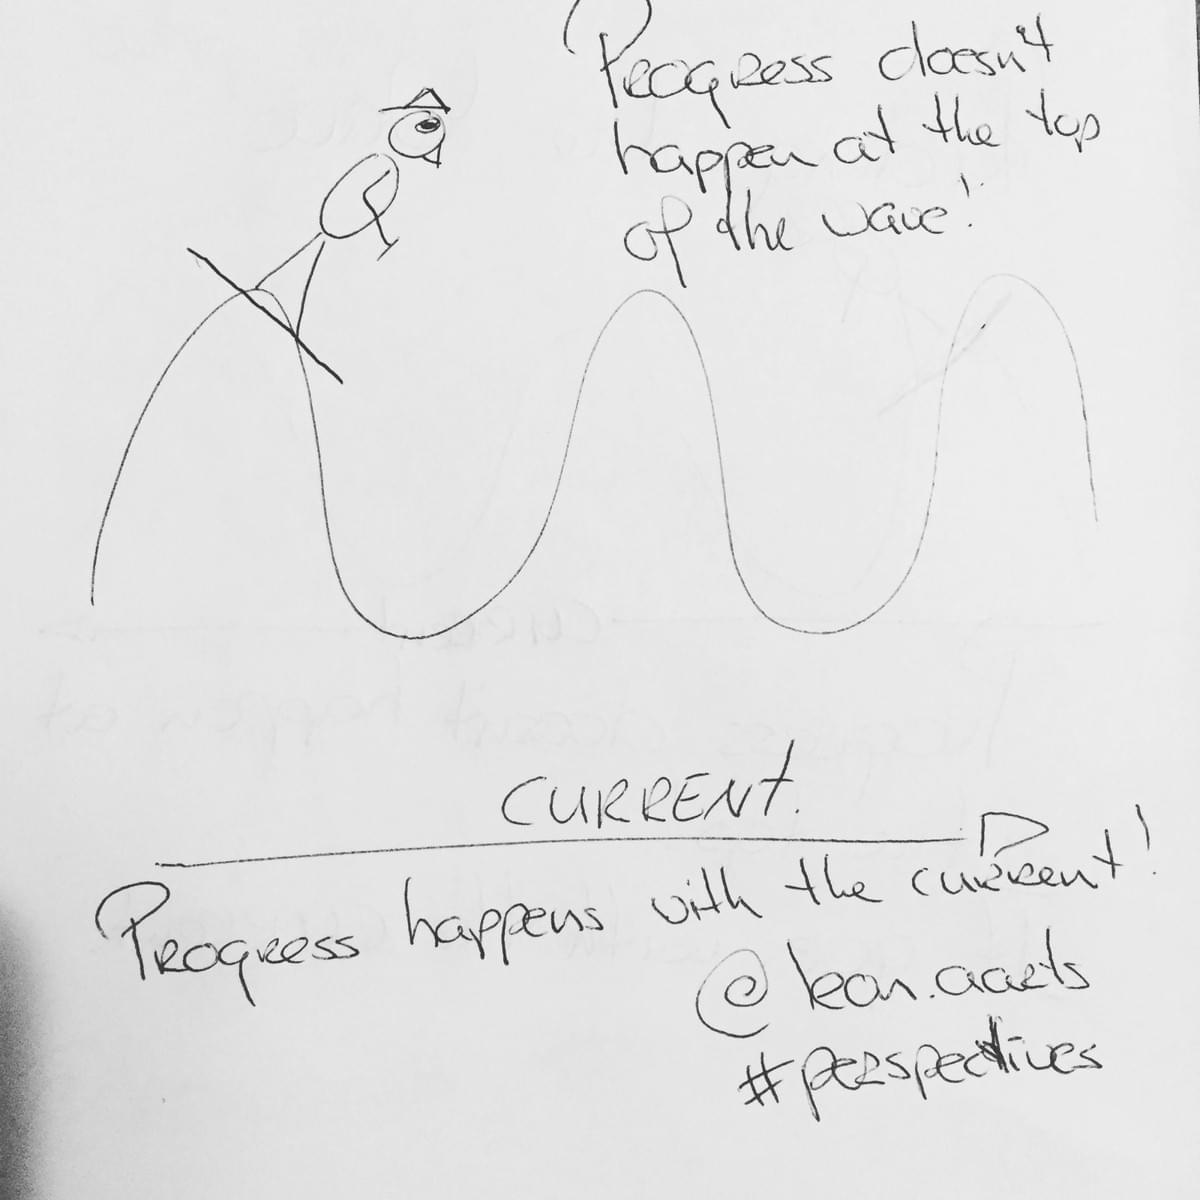 Progress doesn't
happen at the top
of the wave!
CURRENT.
Progress happens with the current!
@leon.aarts
#perspectives